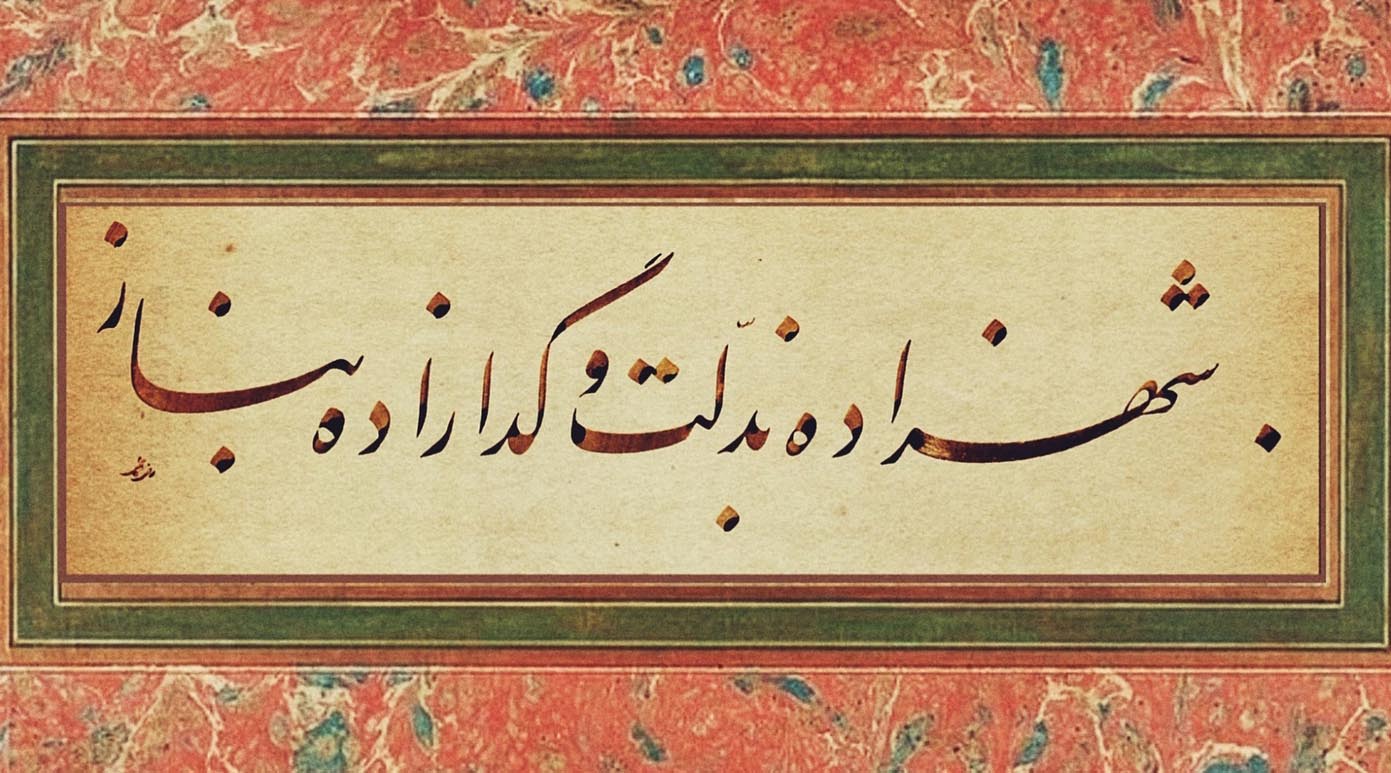 شهزاده بذلّت و گدازاده بناز